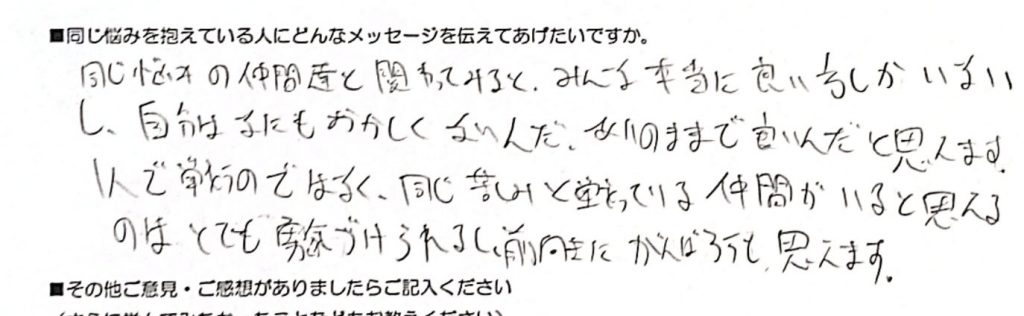 ■同じ悩みを抱えている人にどんなメッセージを伝えてあげたいですか。
同じ悩みの仲間達と関わってみると、みんな本当に良い方しかいない
し、自分はなにもおかしくないんだ、ありのままで良いんだと思えます。
1人で戦うのではなく、同じ苦しみと戦っている仲間がいると思える
のはとても勇気づけられるし、前向きにがんばろうも思えます。
■その他ご意見・ご感想がありましたらご記入ください